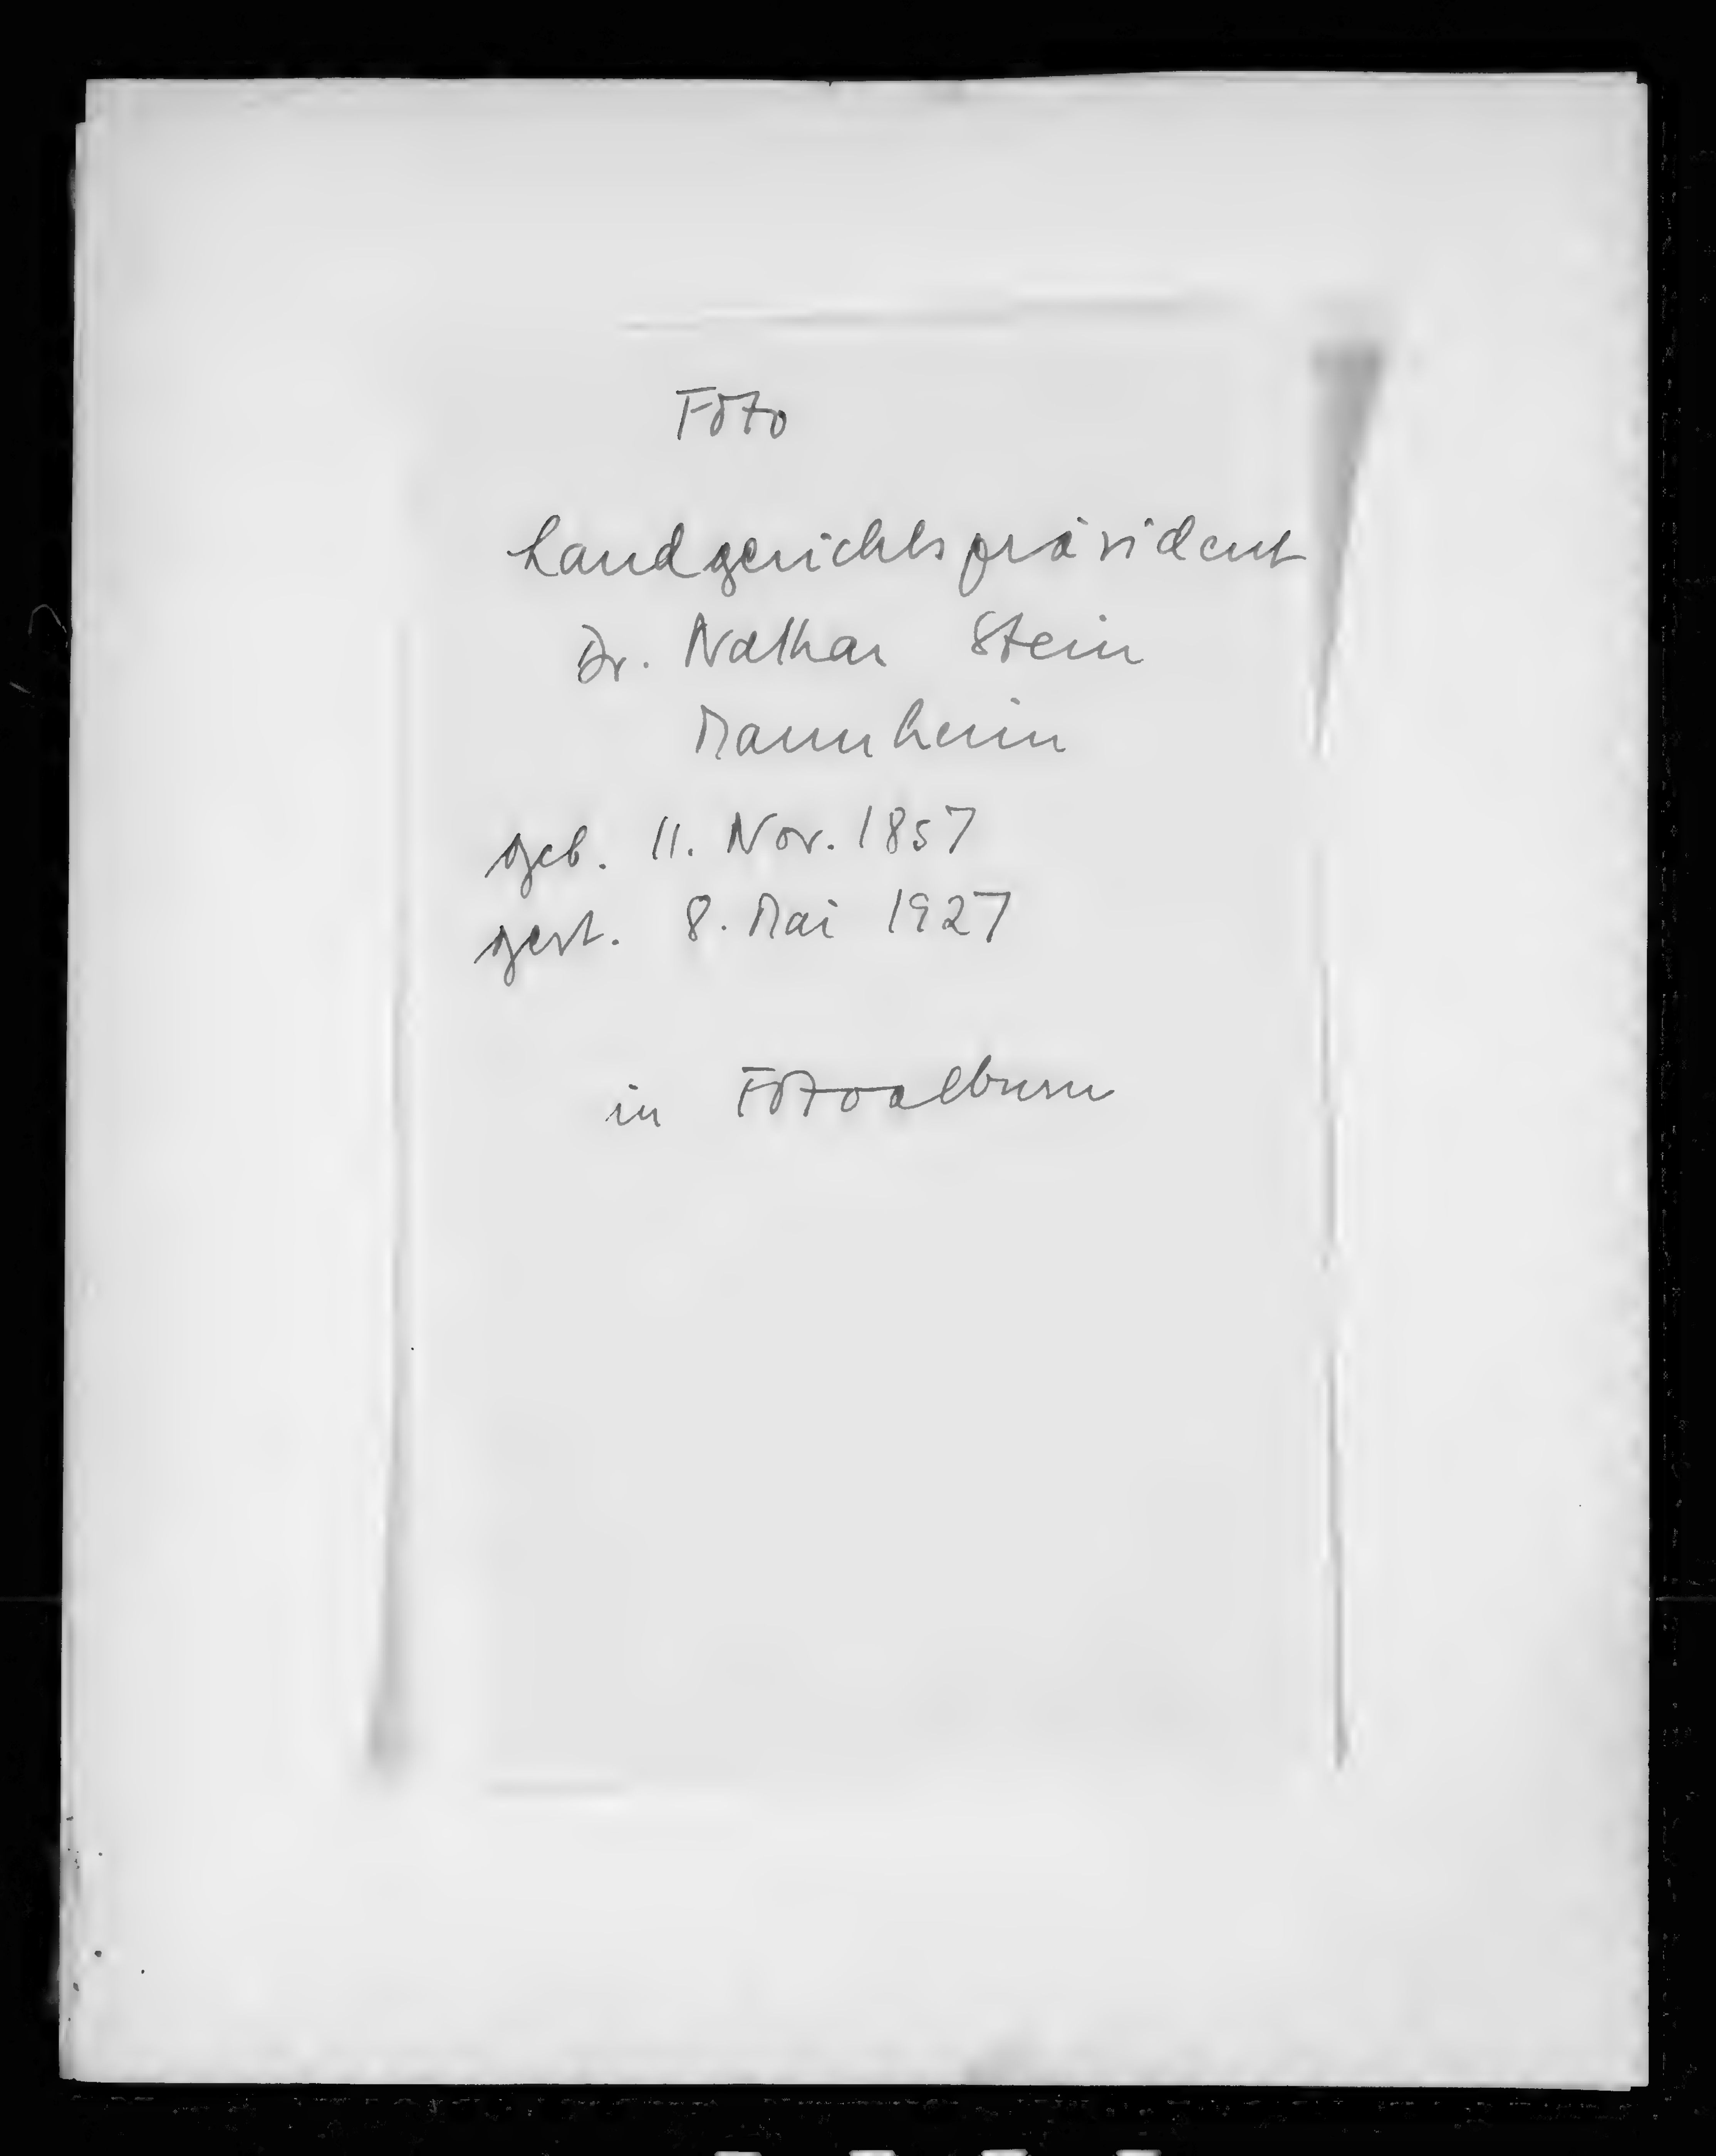 Foto
Landgerichtspräsident
Dr. Nathan Stein
Mannheim
geb. 11. Nov. 1857
gest. 8. Mai 1927
in Fotoalbum